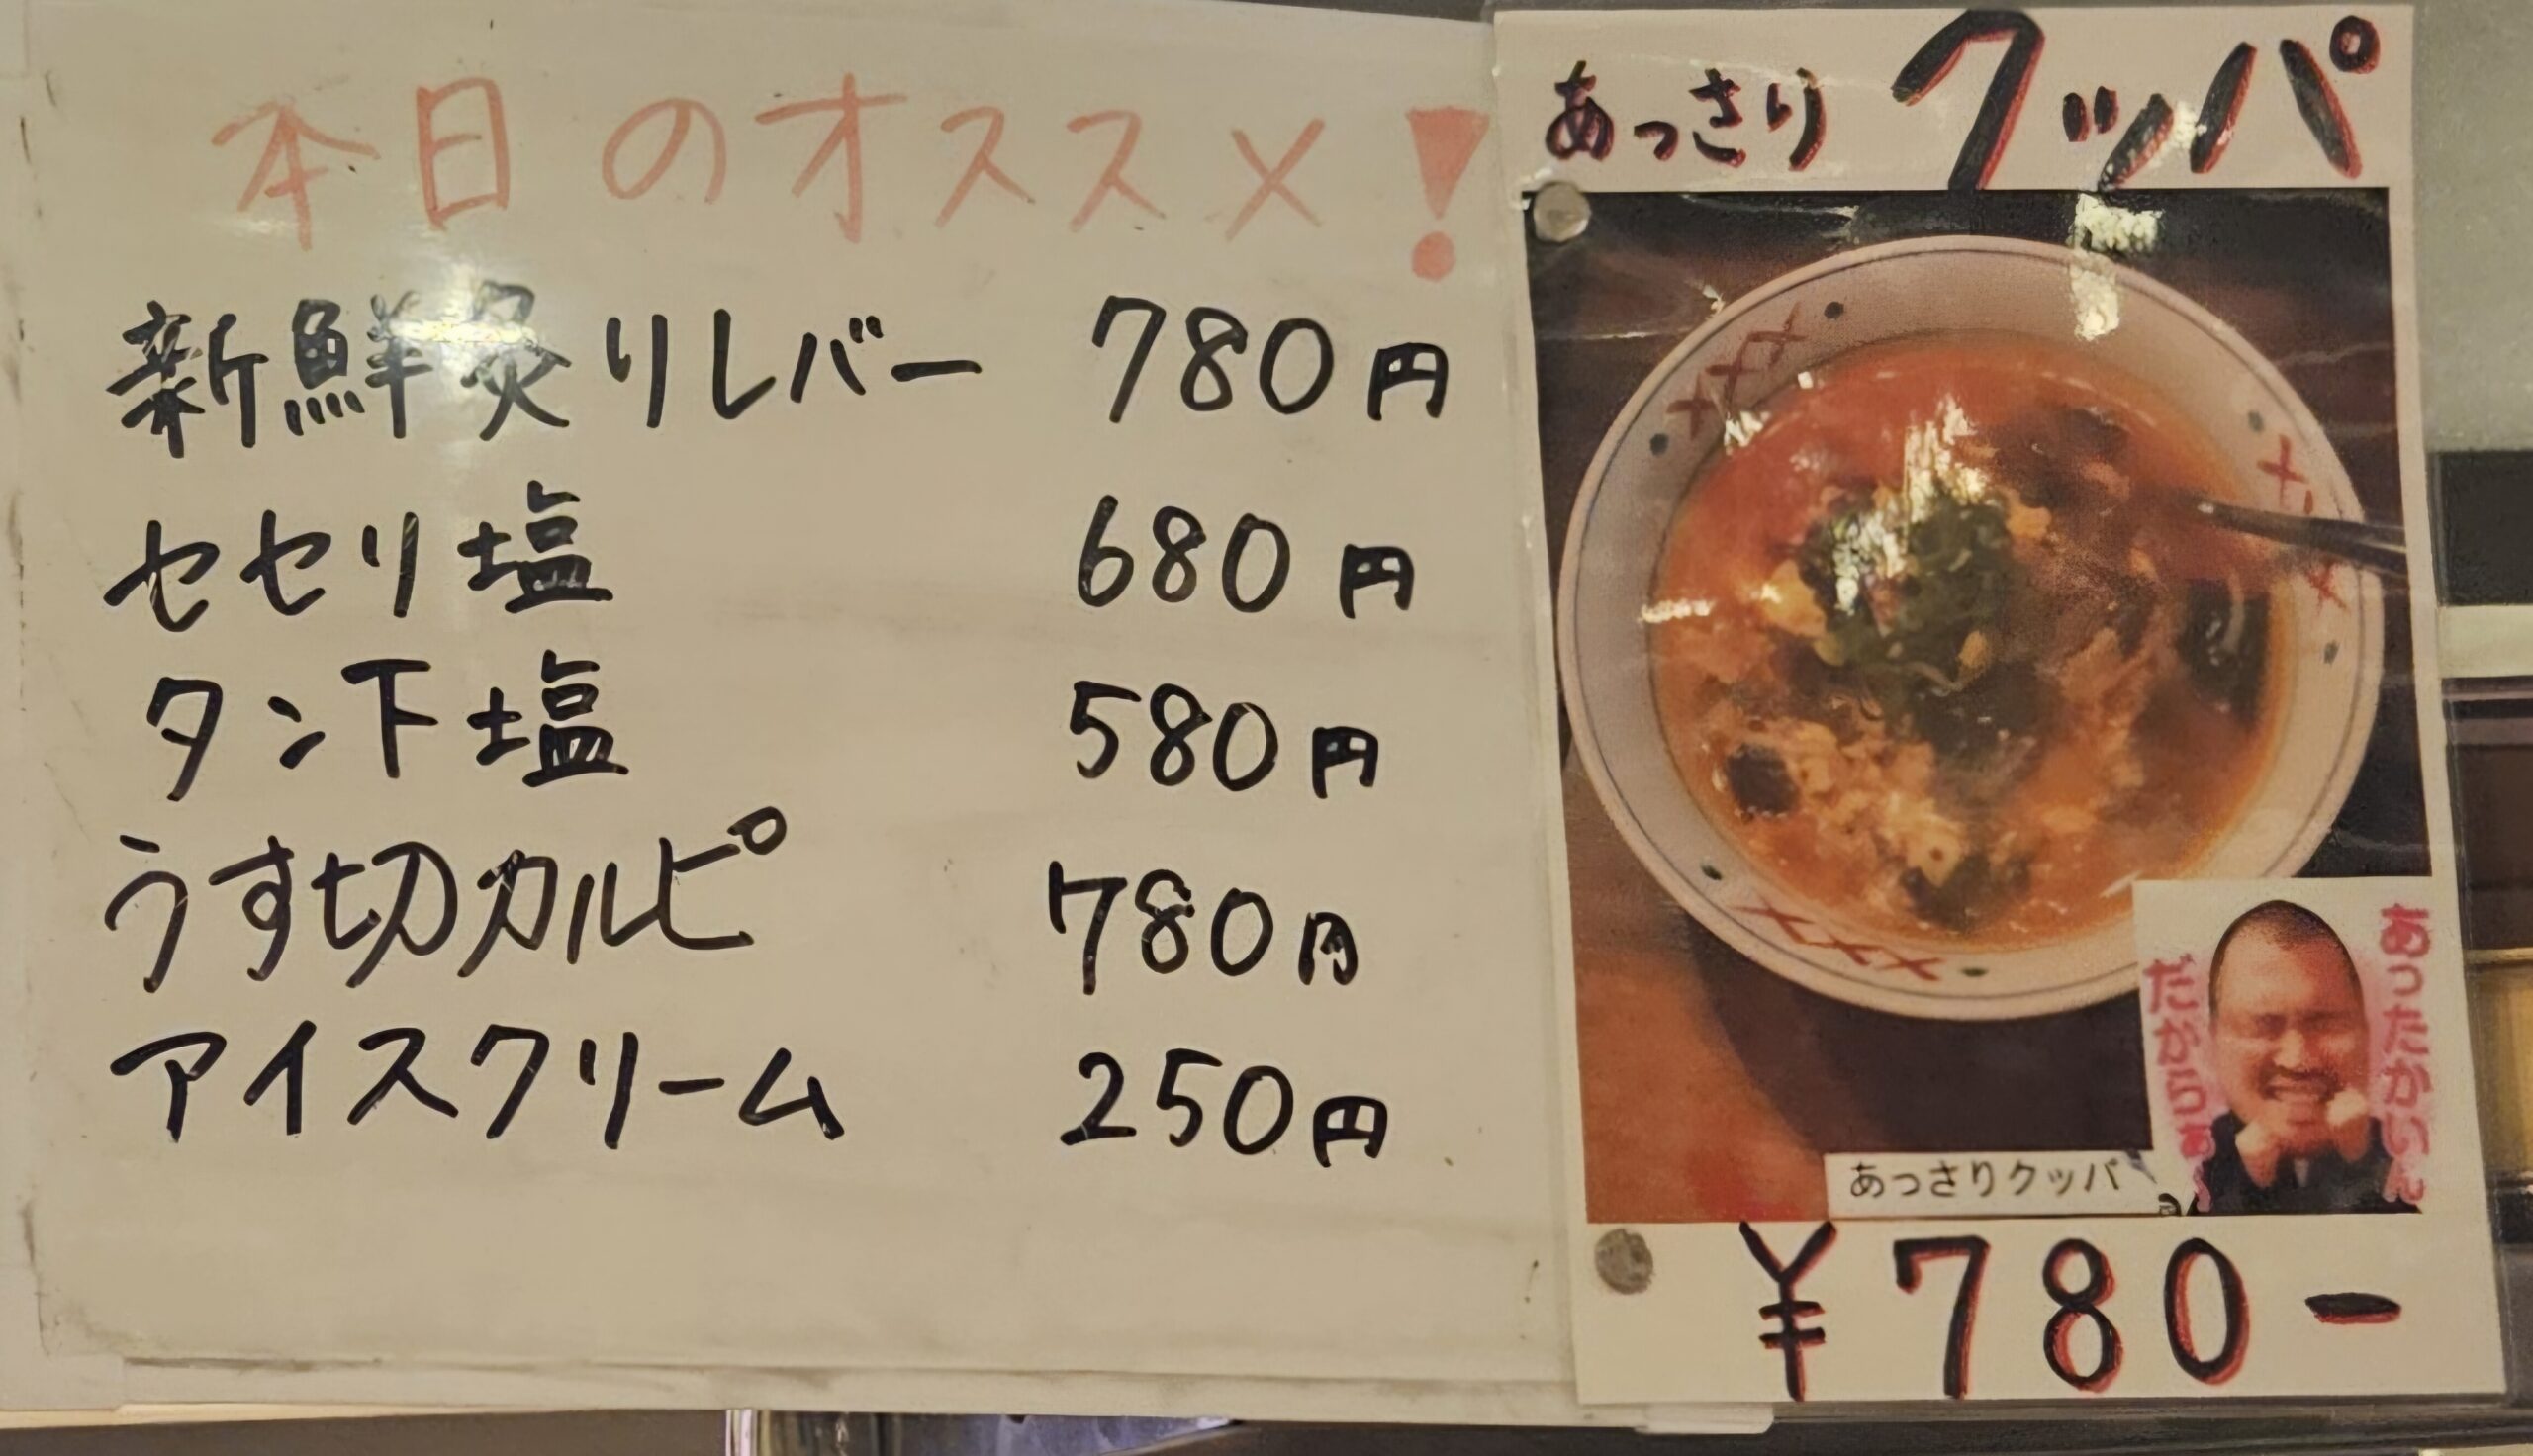 本日のオススメ!
新鮮炙りレバー 780円
セセリ塩 680円
タン下塩 580円
うす切カルピ 780円
アイスクリーム 250円
あっさり クッパ
あったかいん
だからぁ〜
あっさりクッパ
¥780-